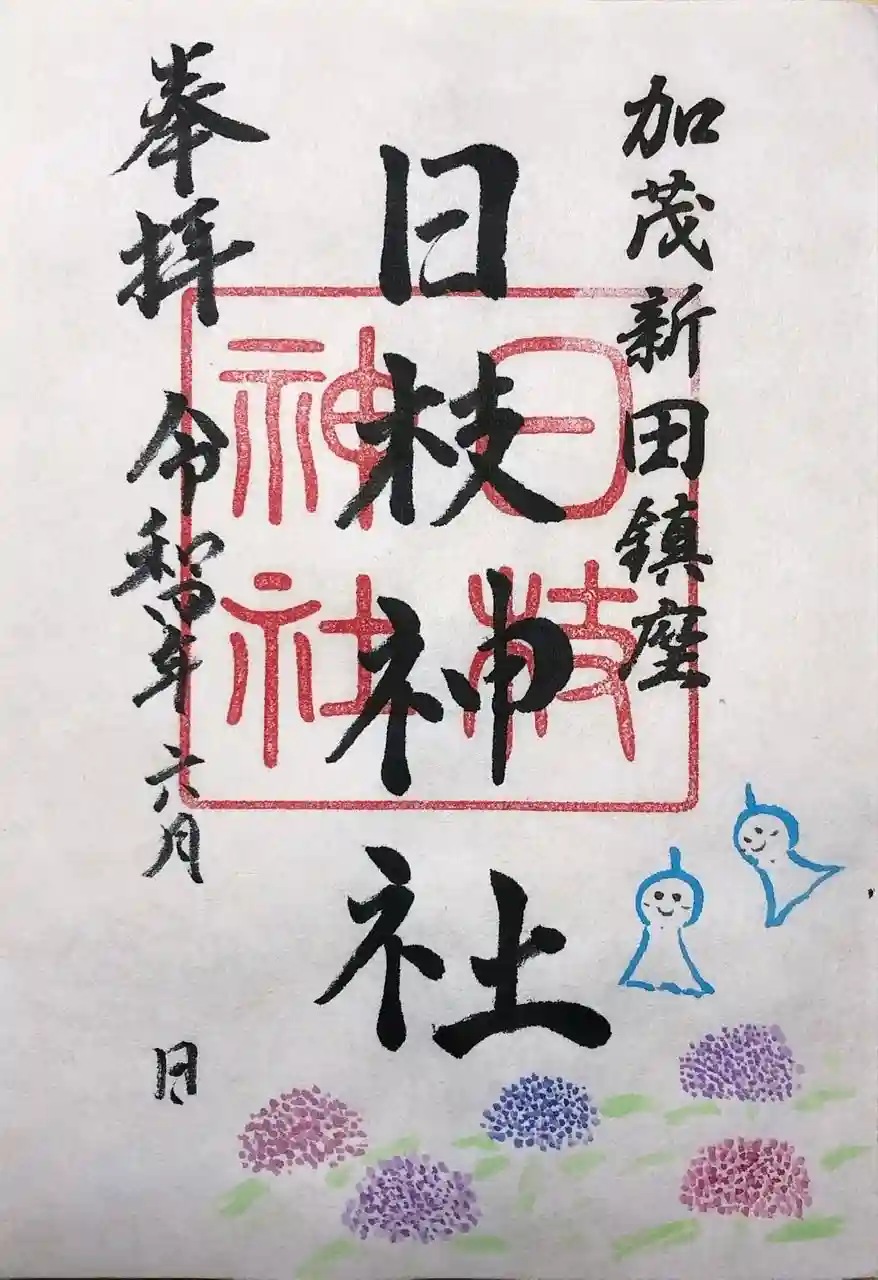 加茂新田鎮座
日枝神社
日枝
神社
奉拝
令和四年六月
日